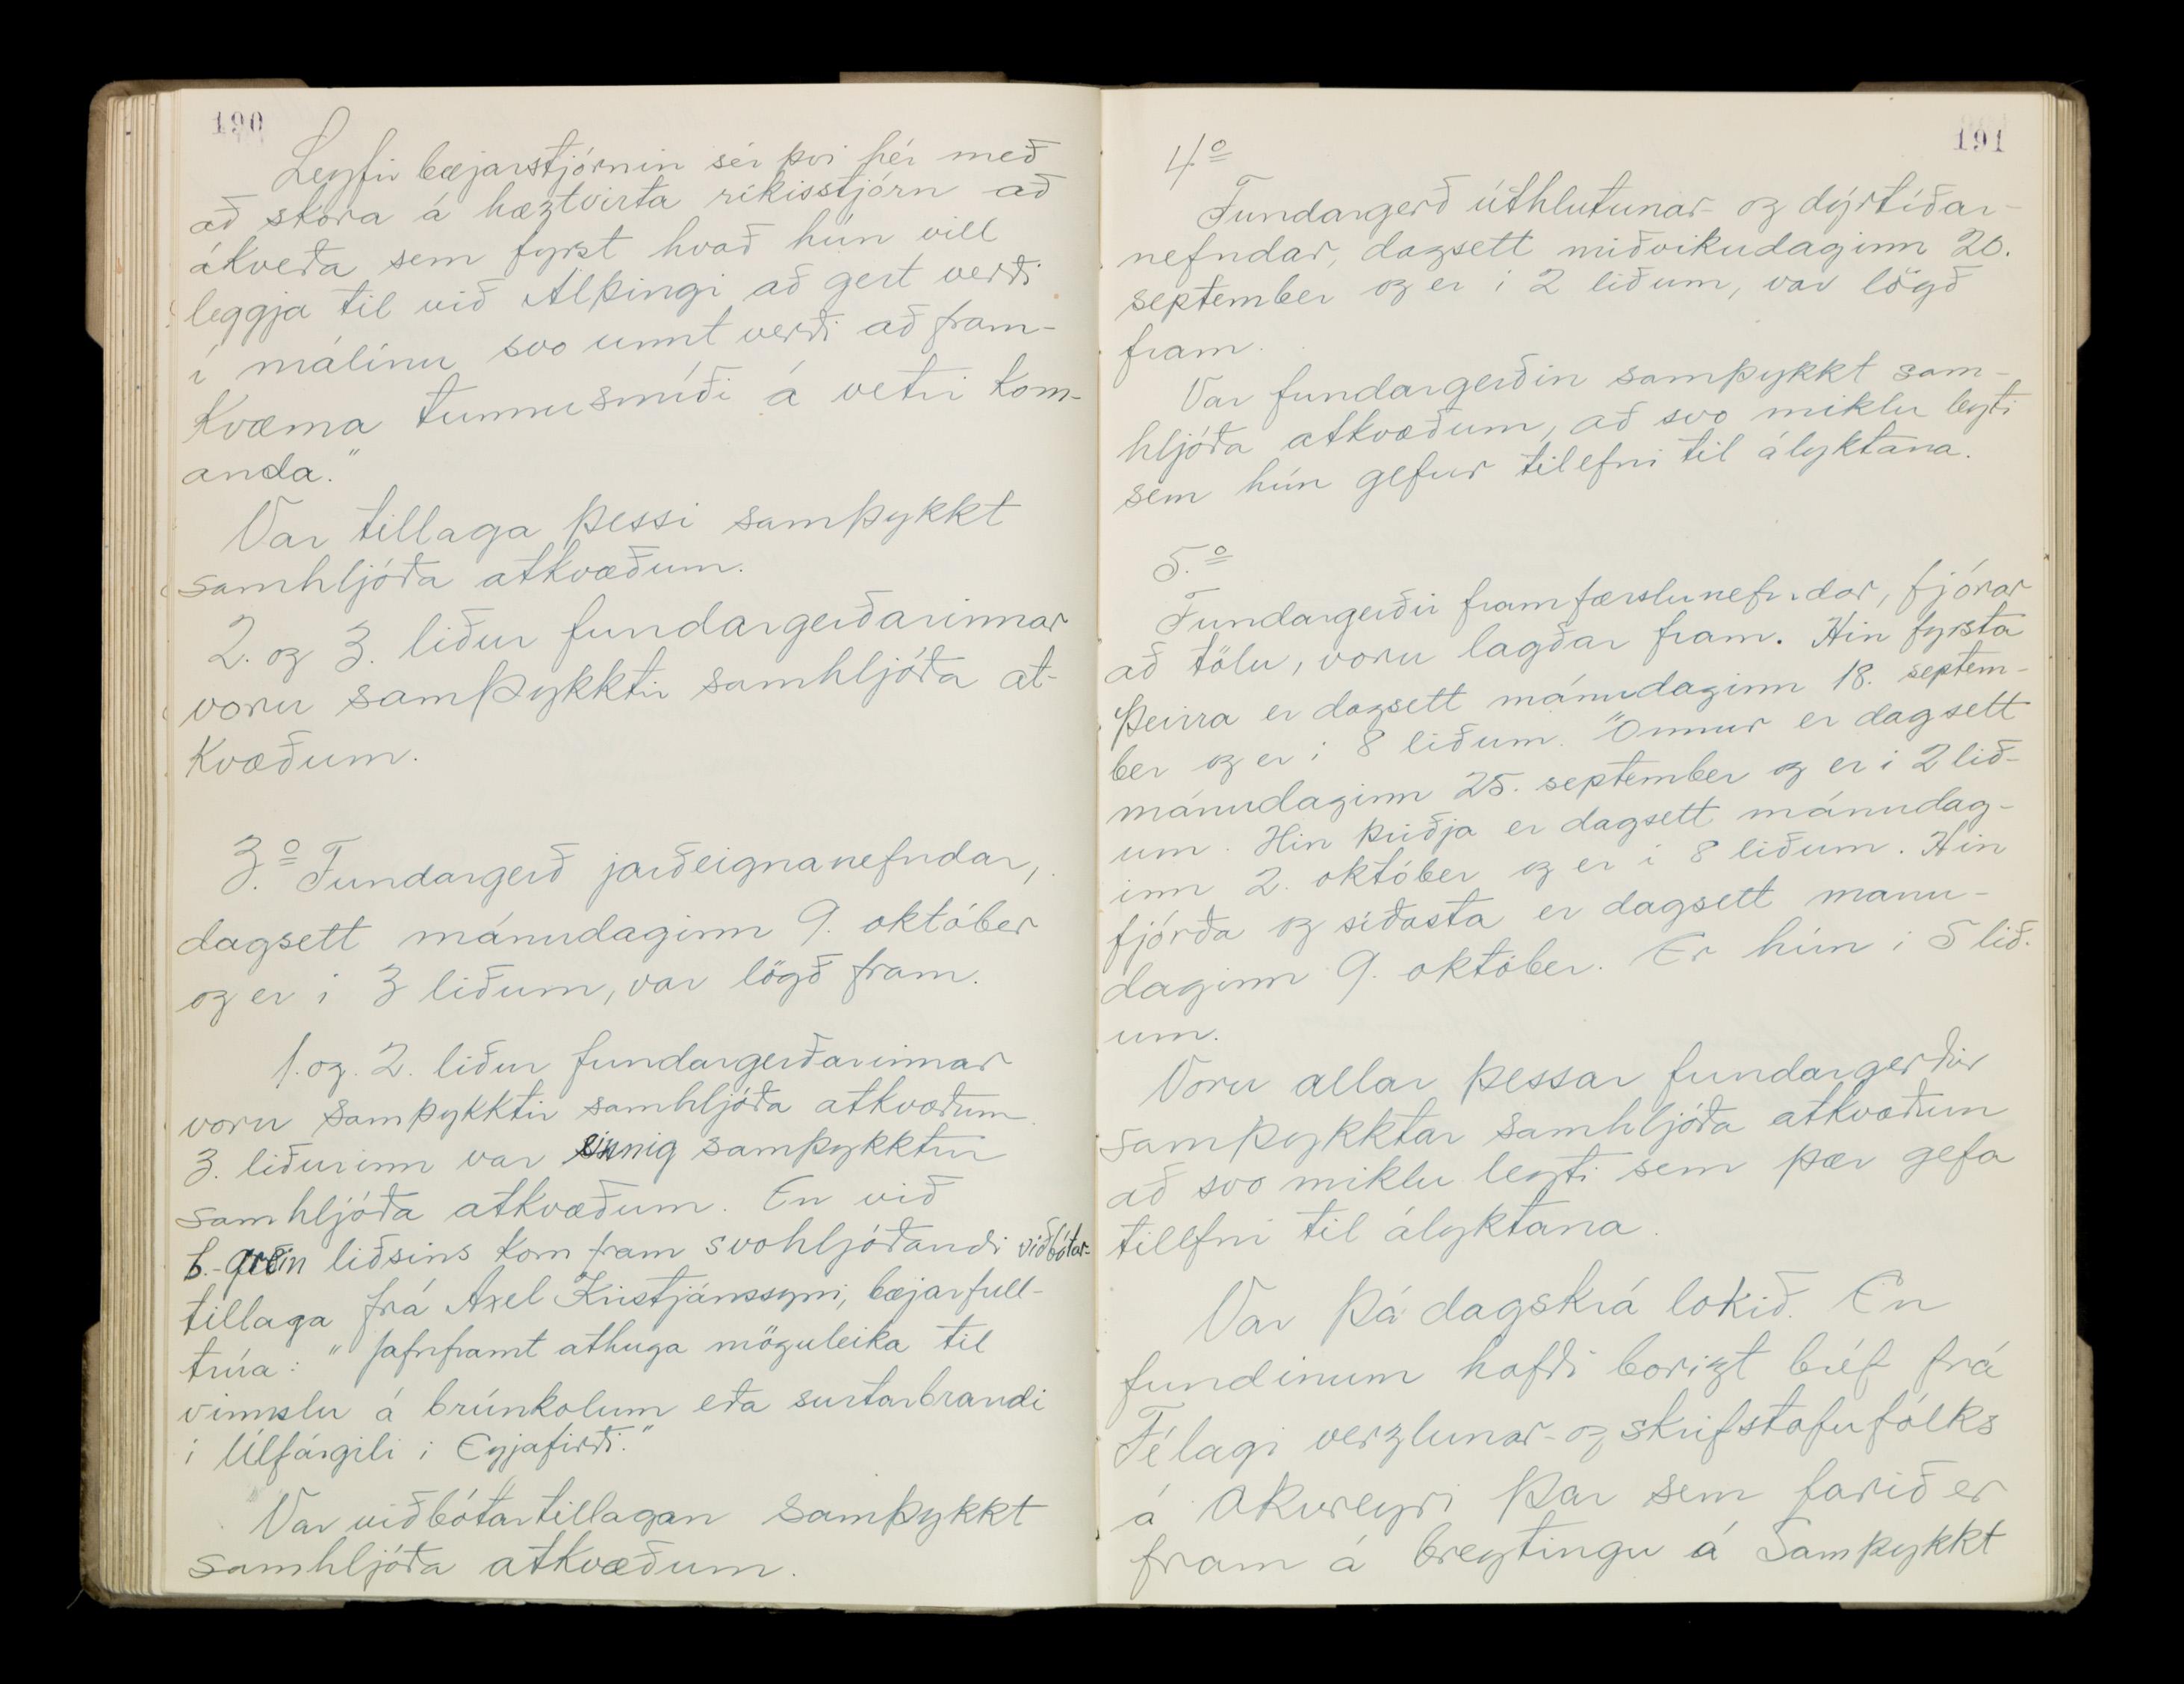 190
Leyfir bæjarstjórnin sér því hér með
að skora á hæztvirta ríkisstjórn að
ákveða sem fyrst hvað hún vill
leggja til við Alþingi að gert verði
í málinu svo unnt verði að fram-
kvæma tunnusmíði á vetri kom-
anda."
Var tillaga þessi samþykkt
samhljóða atkvæðum.
2. og 3. liður fundargerðarinnar
voru samþykktir samhljóða at-
kvæðum.
3.º Fundargerð jarðeignanefndar,
dagsett mánudaginn 9. október
og er i 3 liðum, var lögð fram.
1. og. 2. liður fundargerðarinnar
voru samþykktir samhljóða atkvæðum.
3. liðurinn var sinnig samþykktur
samhljóða atkvæðum. En við
b.-grein liðsins kom fram svohljóðandi viðbótar-
tillaga frá Axel Kristjánssyni, bæjarfull-
trúa: "Jafnframt athuga möguleika til
vinnslu á brúnkolum eða surtarbrandi
i Úlfárgili i Eyjafirði."
Var viðbótartillagan samþykkt
samhljóða atkvæðum.
191
4.º
Fundargerð úthlutunar- og dýrtíðar-
nefndar, dagsett miðvikudaginn 20.
september og er i 2 liðum, var lögð
fram.
Var fundargerðin samþykkt sam-
hljóða atkvæðum, að svo miklu leyti
sem hún gefur tilefni til ályktana.
5.º
Fundargerðir framfærslunefndar, fjórar
að tölu, voru lagðar fram. Hin fyrsta
þeirra er dagsett mánudaginn 18. septem-
ber og er i 8 liðum. Önnur er dagsett
mánudaginn 25. september og er i 2 lið-
um. Hin þriðja er dagsett mánudag-
inn 2. október og er i 8 liðum. Hin
fjórða og síðasta er dagsett manu-
daginn 9. október. Er hún i 5 lið-
um.
Voru allar þessar fundargerðir
samþykktar samhljóða atkvæðum
að svo miklu leyti sem þær gefa
tilefni til ályktana.
Var þá dagskrá lokið. En
fundinum hafði borizt bréf frá
Félagi verzlunar- og skrifstofufólks
á Akureyri þar sem farið er
fram á breytingu á Samþykkt